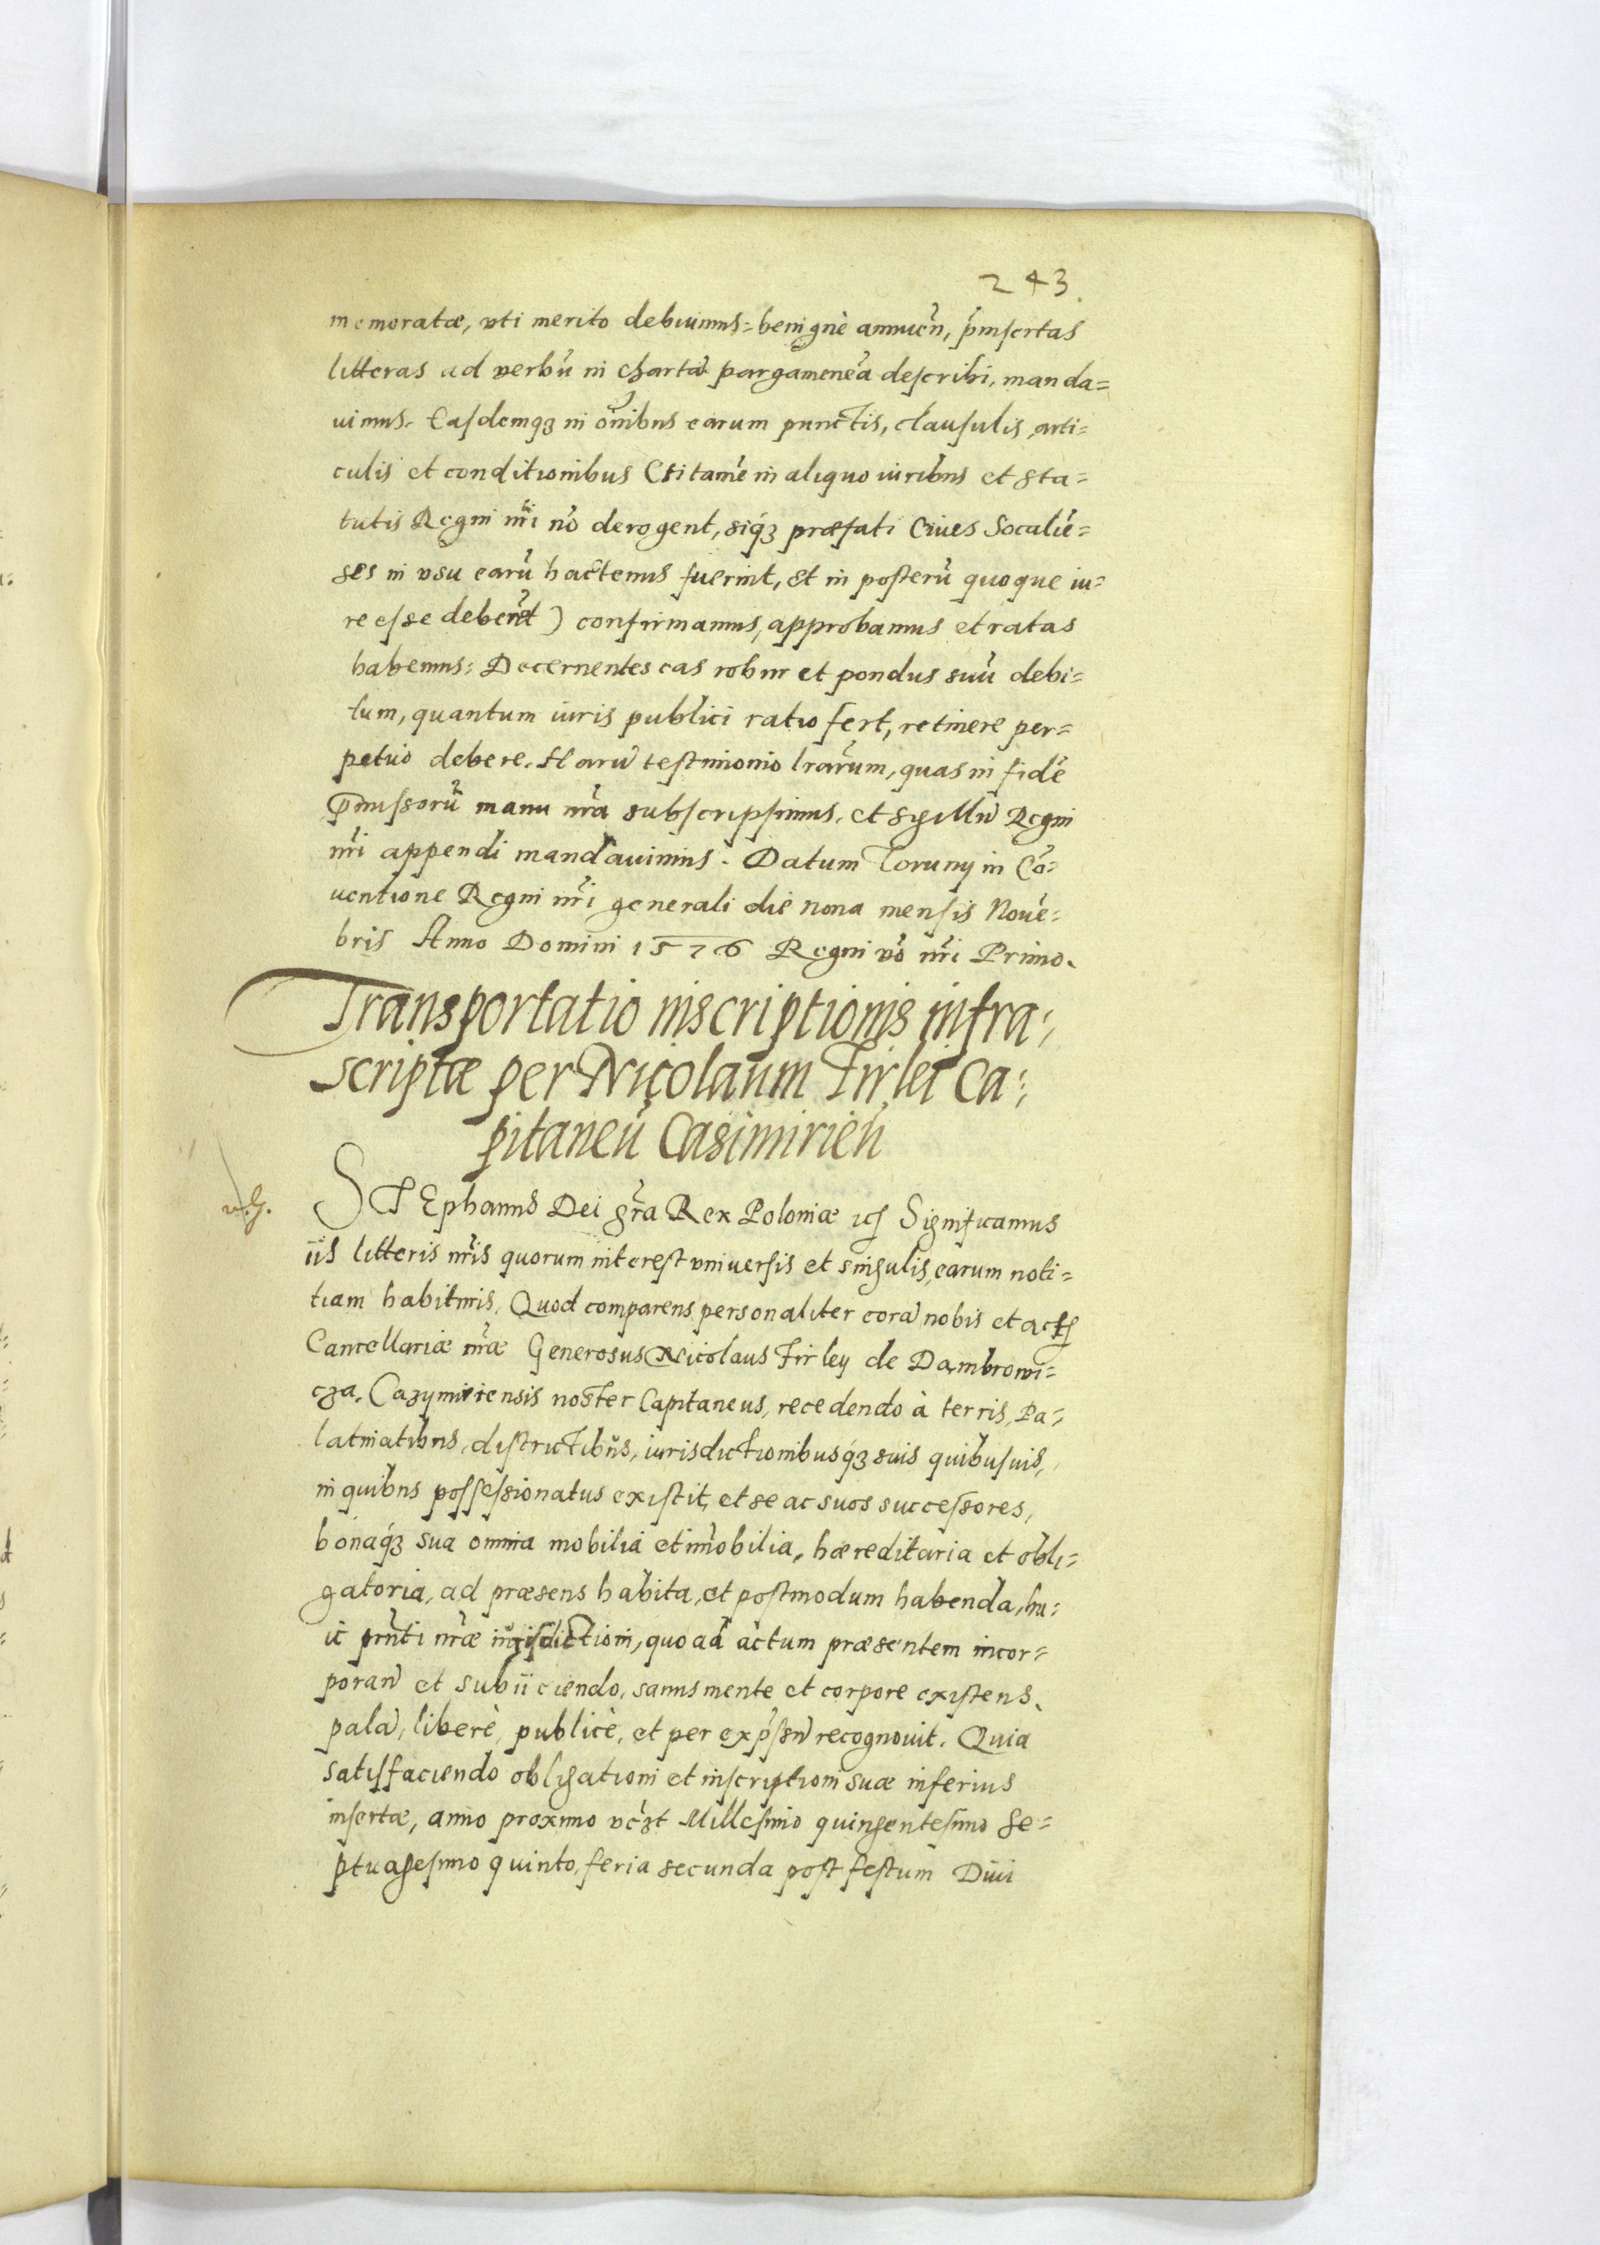 243.
memoratæ, vti merito debuimus: benignè annueñ, p̃insertas
litteras ad verbũ in chartã pargameneã describi, manda=
uimus. Easdemqʒ in õnibus earum punctis, clausulis, arti=
culis et conditionibus (si tamẽ in aliquo iuribus et sta=
tutis Regni nr̃i nõ derogent, siq́ʒ præfati Ciues Socaliẽ=
ses in vsu earũ hactenus fuerint, et in posterũ quoque iu=
re esse debent) confirmamus, approbamus et ratas
habemus: Decernentes eas robur et pondus suũ debi=
tum, quantum iuris publici ratio fert, retinere per=
petuò debere. Harũ testimonio lrãrum, quas in fidẽ
p̃missorũ manu nr̃a subscripsimus, et sigillũ Regni
nr̃i appendi mandauimus. Datum Toruny in Cõ=
uentione Regni nr̃i generali die nona mensis Nouẽ=
bris Anno Domini 1576 Regni võ nr̃i Primo.
Transportatio inscriptionis infra=
scriptæ per Nicolaum Firlei Ca=
pitaneũ Casimirieñ
STEphanus Dei gr̃a Rex Poloniæ ꝛcʃ Significamus
iis litteris nr̃is quorum interest vniuersis et singulis, earum noti=
tiam habituris. Quod comparens personaliter corã nobis et actʃ
Cancellariæ nr̃æ Generosus Nicolaus Firley de Dambrowi=
cza, Cazymiriensis noster Capitaneus, recedendo à terris, Pa=
latinatibus, districtibus, iurisdictionibusq́ʒ suis quibusuis,
in quibus possessionatus existit, et se ac suos successores,
bonaq́ʒ sua omnia mobilia et im̃obilia, hæreditaria et obli=
gatoria, ad præsens habita, et postmodum habenda, hu=
ic pr̃nti nr̃æ iurisdictioni, quo ad actum præsentem incor=
porañ et subiiciendo, sanus mente et corpore existens,
palã, liberè, publicè, et per exp̃ssũ recognouit. Quia
satisfaciendo obligationi et inscriptioni suæ inferius
insertæ, anno proximo vcʒt Millesimo quingentesimo se=
ptuagesimo quinto, feria secunda post festum Diui